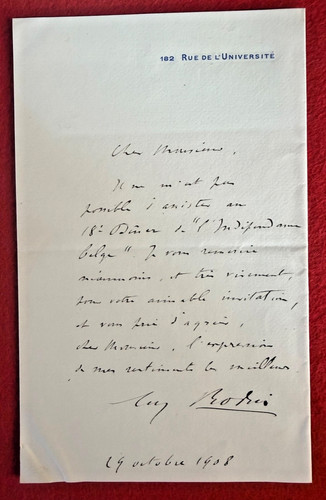 182 RUE DE L'UNIVERSITÉ
Cher Monsieur,
Il ne m'est pas
possible d'assister au
18e Dîner de "l'Indépendance
belge". Je vous remercie
néanmoins, et très vivement,
pour votre aimable invitation,
et vous prie d'agréer,
cher Monsieur, l'expression
de mes sentiments les meilleurs
Aug Rodin
29 octobre 1908